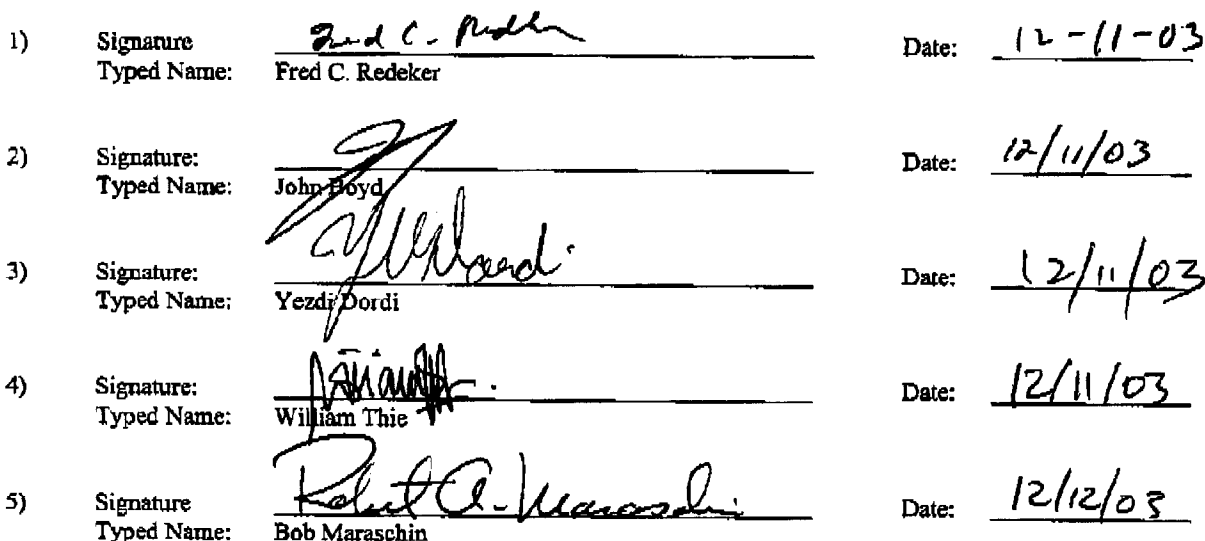 1) Signature Fred C. Redeker Date: 12-11-03
Typed Name: Fred C. Redeker
2) Signature: Date: 12/11/03
Typed Name: John Boyd
3) Signature: Date: 12/11/03
Typed Name: Yezdi Dordi
4) Signature: Date: 12/11/03
Typed Name: William Thie
5) Signature Robert A. Maraschin Date: 12/12/03
Typed Name: Bob Maraschin